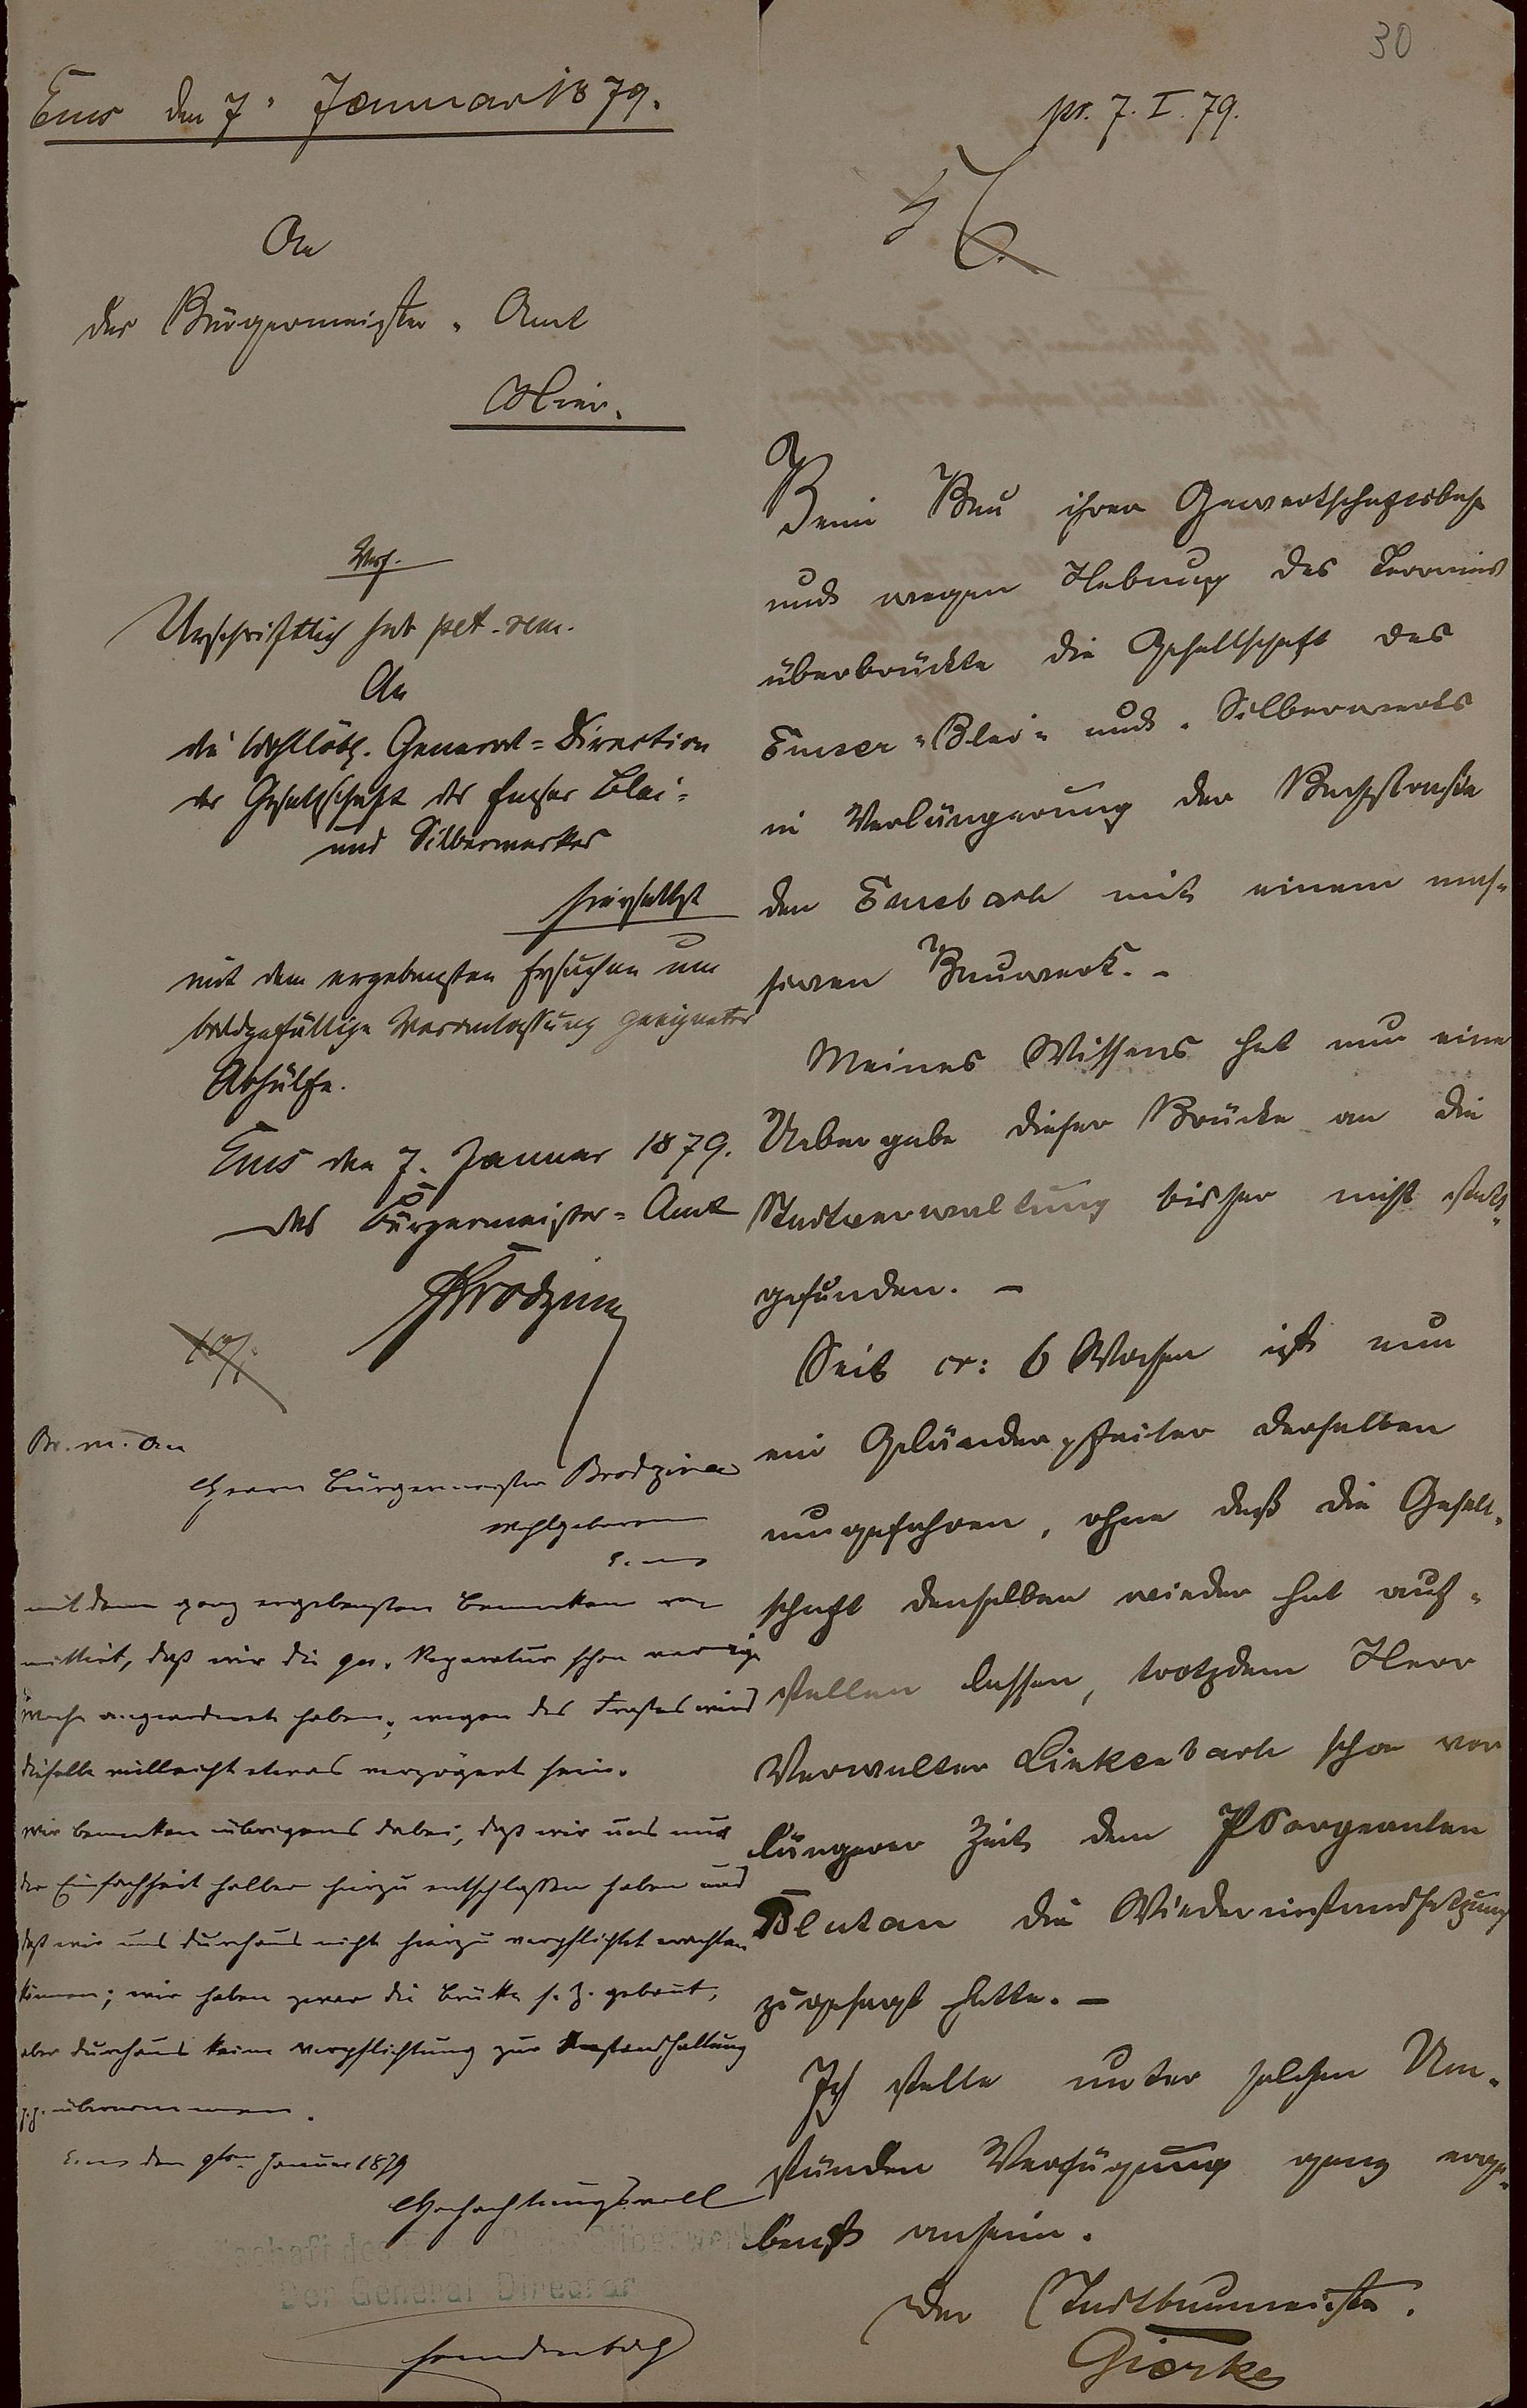 30
Ems den 7. Januar 1879.
pr. 7. I. 79.
An
das Bürgermeister-Amt
Hier.
Beim Bau ihrer Gewerkschaftsbahn
und wegen Hebung des Terrains
überbrückte die Gesellschaft des
Emser-Blei- und Silberwerks
in Verlängerung der Bachstraße
den Emsbach mit einem mas-
siven Bauwerk. -
Meines Wissens hat nun eine
Uebergabe dieser Brücke an die
Stadtverwaltung bisher nicht statt-
gefunden. -
Seit cr: 6 Wochen ist nun
ein Geländerpfeiler derselben
umgefahren, ohne daß die Gesell-
schaft denselben wieder hat auf-
stellen lassen, trotzdem Herr
Verwalter Linkenbach schon vor
längerer Zeit dem PSergeanten
die Wiederinstandsetzung
zugesagt hatte. -
Ich stelle unter solchen Um-
ständen Verfügung ganz erge-
benst anheim.
Der Stadtbaumeister.
Gierke
Verf.
Urschriftlich sub pet. rem.
An
die Wohllöbl. General-Direction
der Gesellschaft des Emser Blei-
und Silberwerkes
hierselbst
mit dem ergebensten Ersuchen um
baldgefällige Veranlassung geeigneter
Abhülfe.
Ems den 7. Januar 1879.
Das Bürgermeister-Amt
Brodzina
Br. m. an
Herrn Bürgermeister Brodzina
Wohlgeboren
Ems
mit dem ganz ergebensten Bemerken re-
mittirt, daß wir die qu. Reparatur schon vorige
Woche angeordnet haben; wegen des Frostes wird
dieselbe vielleicht etwas verzögert sein.
Wir bemerken übrigens dabei, daß wir uns nur
der Einfachheit halber hierzu entschlossen haben und
daß wir uns durchaus nicht hierzu verpflichtet erachten
können; wir haben zwar die Brücke s. Z. gebaut,
aber durchaus keine Verpflichtung zur Instandhaltung
übernommen.
Ems den 9ten Januar 1879
Hochachtungsvoll
Der General Director